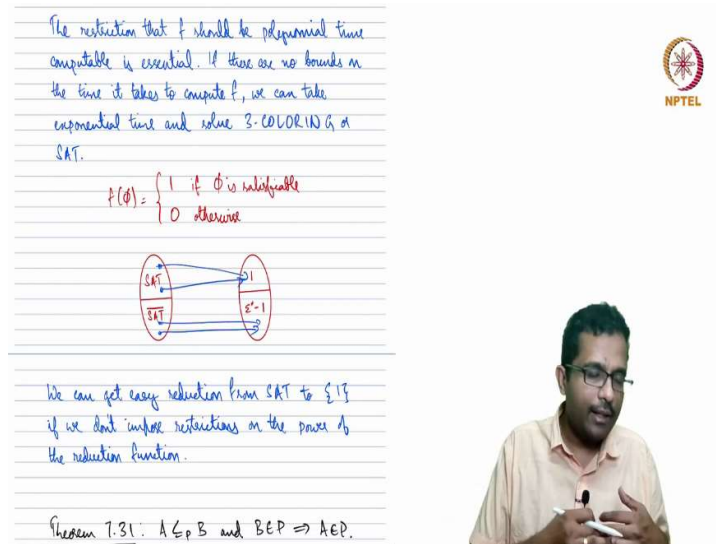 The restriction that f should be polynomial time
computable is essential. If there are no bounds on
the time it takes to compute f, we can take
exponential time and solve 3-COLORING or
SAT.
f(ϕ) = { 1 if ϕ is satisfiable
0 otherwise
SAT 1
S̅A̅T̅ Σ* - 1
We can get easy reduction from SAT to {1}
if we don't impose restrictions on the power of
the reduction function.
Theorem 7.31: A ≤p B and B ∈ P ⇒ A ∈ P.
NPTEL